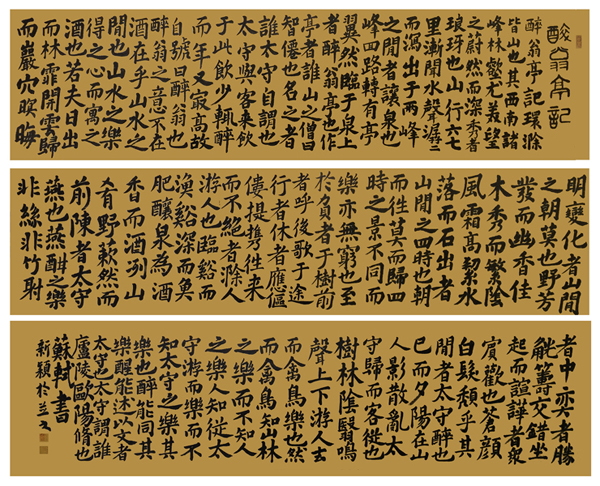 醉翁亭記
醉翁亭記環滁
皆山也其西南諸
峰林壑尤美望
之蔚然而深秀者
琅玡也山行六七
里漸聞水聲潺〻
而瀉出于兩峰
之間者讓泉也
峰回路轉有亭
翼然臨于泉上
者醉翁亭也作
亭者誰山之僧曰
智僊也名之者
誰太守自謂也
太守與客來飲
于此飲少輒醉
而年又最高故
自號曰醉翁也
醉翁之意不在
酒在乎山水之
間也山水之樂
得之心而寓之
酒也若夫日出
而林霏開雲歸
而巖穴暝晦
明變化者山間
之朝莫也野芳
發而幽香佳
木秀而繁陰
風霜高絜水
落而石出者
山間之四時也朝
而往莫而歸四
時之景不同而
樂亦無窮也至
於負者于樹前
者呼後歌于途
行者休者應傴
僂提攜往來
而不絕者滁人
游人也臨谿而
漁谿深而魚
肥釀泉為酒
香而酒洌山
肴野蔌然而
前陳者太守
燕也燕酣之樂
非絲非竹射
者中奕者勝
觥籌交錯坐
起而諠譁者衆
賓歡也蒼顏
白髮頹乎其
間者太守醉也
已而夕陽在山
人影散亂太
守歸而客從也
樹林陰翳鳴
聲上下游人去
而禽鳥樂也然
而禽鳥知山林
之樂而不知人
之樂人知從太
守游而樂而不
知太守之樂其
樂也醉能同其
樂醒能述以文者
太守也太守謂誰
廬陵歐陽脩也
蘇軾書
新穎於